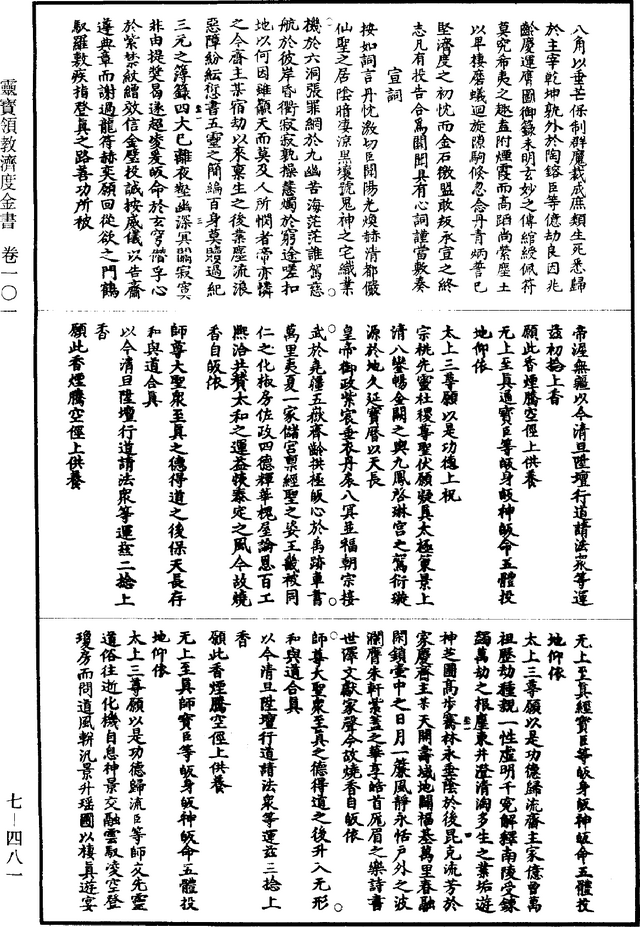 八角以垂芒保制群魔裁成庶類生死悉歸
於主宰乾坤孰外於陶鎔臣等億劫良因兆
齡慶運膺圖御籙未明玄妙之傳綰綬佩符
莫究希夷之趣蓋附煙霞而高蹈尚縈塵土
以卑棲磨蟻迴旋隙駒倏忽念丹青炳誓已
堅濟度之初忱而金石微盟敢叛承宣之終
志凡有投告合爲關聞具有心詞謹當敷奏
宣詞
按如詞言丹忱激切臣聞陽光煥赫清都儼
仙聖之居陰晦凄涼黑壤號鬼神之宅織業
機於六洞張罪網於九幽苦海茫茫誰駕慈
航於彼岸昏衢寂寂孰操慧燭於窮途嗟扣
地以何因雖顧天而莫及人所憫者帝亦憐
之今齋主某宿劫以來稟生之後業塵流浪
惡障紛紜您書五靈之簡編百身莫贖過紀
三元之簿錄四大已離夜壑幽深冥關寂寞
非由提奬曷遂超凌爰皈命於玄穹僭孚心
於紫禁紋繒效信金璧投誠按威儀以告齋
遵典章而謝過龍符赫奕願回從欲之門鶴
馭羅敷疾指登真之路善功所被
帝渥無疆以今清旦陞壇行道請法眾等運
茲初捻上香
願此香煙騰空徑上供養
无上至真道寶臣等皈身皈神皈命五體投
地仰依
太上三尊願以是功德上祝
宗祧先靈社稷尊聖伏願凝具太極策景上
清八鑾暢金闕之輿九鳳啓琳宮之駕衍璇
源於地久延寶曆以天長
皇帝御政紫宸垂衣丹扆八冥並福朝宗接
武於堯疆五嶽齊齡拱極皈心於禹跡車書
萬里夷夏一家儲宮禀經聖之姿王畿被同
仁之化椒房佐政四德輝華槐屋論恩百工
熙洽共贊太和之運益恢泰定之風今故燒
香自皈依
師尊大聖眾至真之德得道之後保天長存
和與道合真
以今清旦陞壇行道請法眾等運茲二捻上
香
願此香煙騰空徑上供養
无上至真經寶臣等皈身皈神皈命五體投
地仰依
太上三尊願以是功德歸流齋主家億曾萬
祖歷劫種親一性虛明千冤解釋南陵受鍊
蠲萬劫之根塵東井澄清淘多生之業垢遊
神芝圃高步騫林永垂陰於後昆克流芳於
家慶齋主某天開壽域地闢福基萬里春融
閑鎖壺中之日月一簾風靜永恬戶外之波
瀾膺朱軒紫蓋之華享皓首厖眉之樂詩書
世澤文獻家聲今故燒香自皈依
師尊大聖眾至真之德得道之後升入无形
和與道合真
以今清旦陞壇行道請法眾等運茲三捻上
香
願此香煙騰空徑上供養
无上至真師寶臣等皈身皈神皈命五體投
地仰依
太上三尊願以是功德歸流臣等師友先靈
道俗往逝化機自息神景交融雲馭凌空登
瓊房而問道風軿汎景升瑤圃以棲真遊宴
靈寶領教濟度金書 卷一〇一
七－四八一